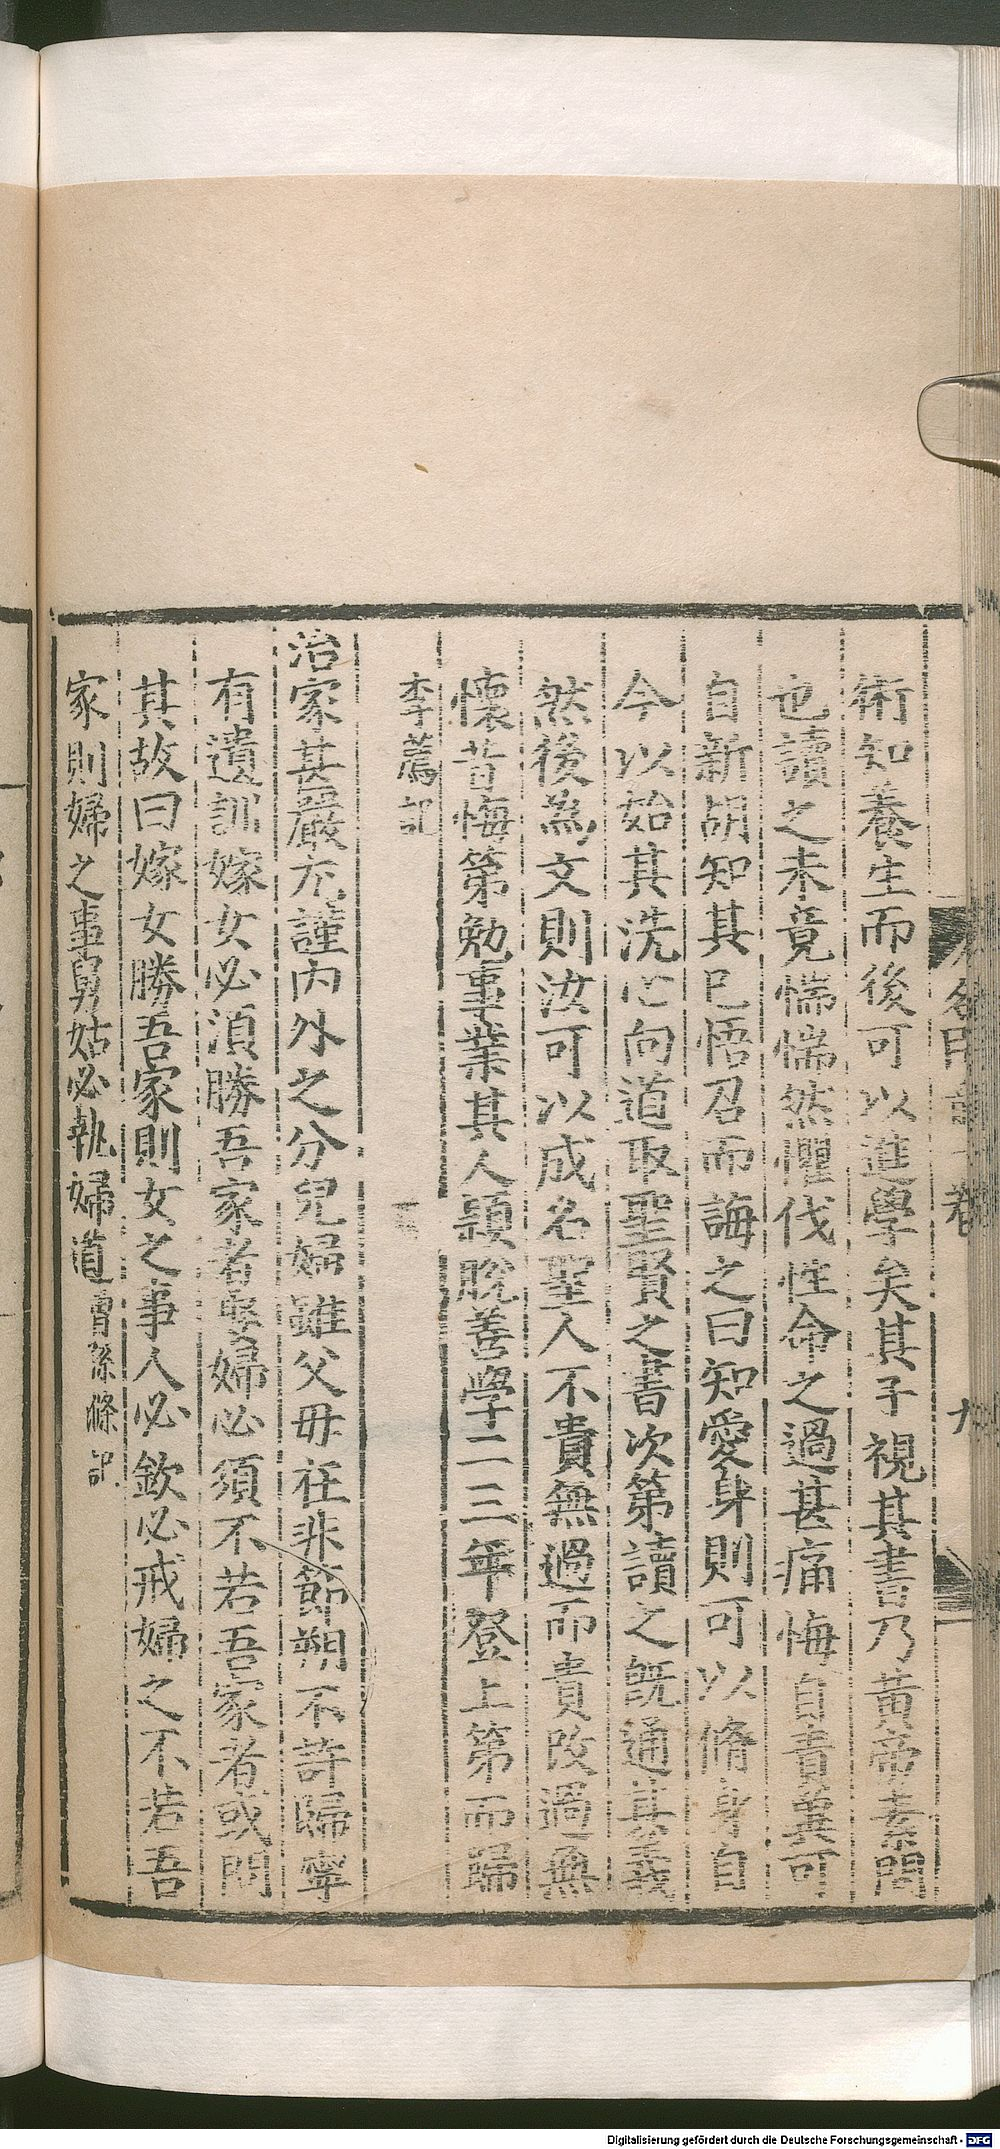 術知養生而後可以進學矣其子視其書乃黄帝素問
也讀之未竟惴惴然懼伐性命之過甚痛悔自責冀可
自新胡知其已悟召而誨之曰知愛身則可以脩身自
今以始其洗心向道取聖賢之書次第讀之旣通其義
然後為文則汝可以成名聖人不貴無過而貴改過無
懷昔悔第勉事業其人頴脫善學二三年登上第而歸
李薦記
治家甚嚴尤謹内外之分兒婦雖父母在非節朔不許歸寧
有遺訓嫁女必須勝吾家者娶婦必須不若吾家者或問
其故曰嫁女勝吾家則女之事人必欽必戒婦之不若吾
家則婦之事舅姑必執婦道曾孫滌記
九
Digitalisierung gefördert durch die Deutsche Forschungsgemeinschaft - DFG